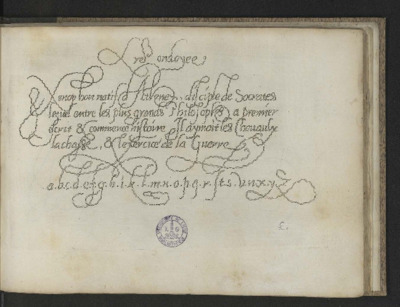 Xenophon natif d'Athenes, disciple de Socrates
lequel entre les plus grands Philosophes a premier
écrit & commencé histoire. Il aymoit les Chevaulx
la chasse, & l'exercice de la Guerre.
a.b.c.d.e.f.g.h.i.k.l.m.n.o.p.q.r.ſ.t.s.v.u.x.y.z
C.